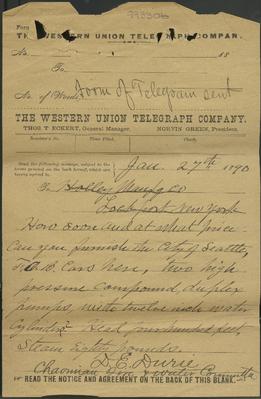 793306
Form
THE WESTERN UNION TELEGRAPH COMPAN.
No. 18
To
No. of Words Form of Telegram sent
THE WESTERN UNION TELEGRAPH COMPANY.
THOS T ECKERT, General Manager. NORVIN GREEN, President.
Send the following message, subject to the
terms printed on the back hereof, which are
hereby agreed to.
Jan. 27th 1890
To Holley Manfg Co
Lockport New York
How soon and at what price
can you furnish the City of Seattle,
F.O.B. Cars here, two high
pressure compound duplex
pumps, with twelve inch water
cylinders. Head four hundred feet.
Steam Eighty pounds.
D. E. Durie
Chairman Fire & Water Committee
READ THE NOTICE AND AGREEMENT ON THE BACK OF THIS BLANK.